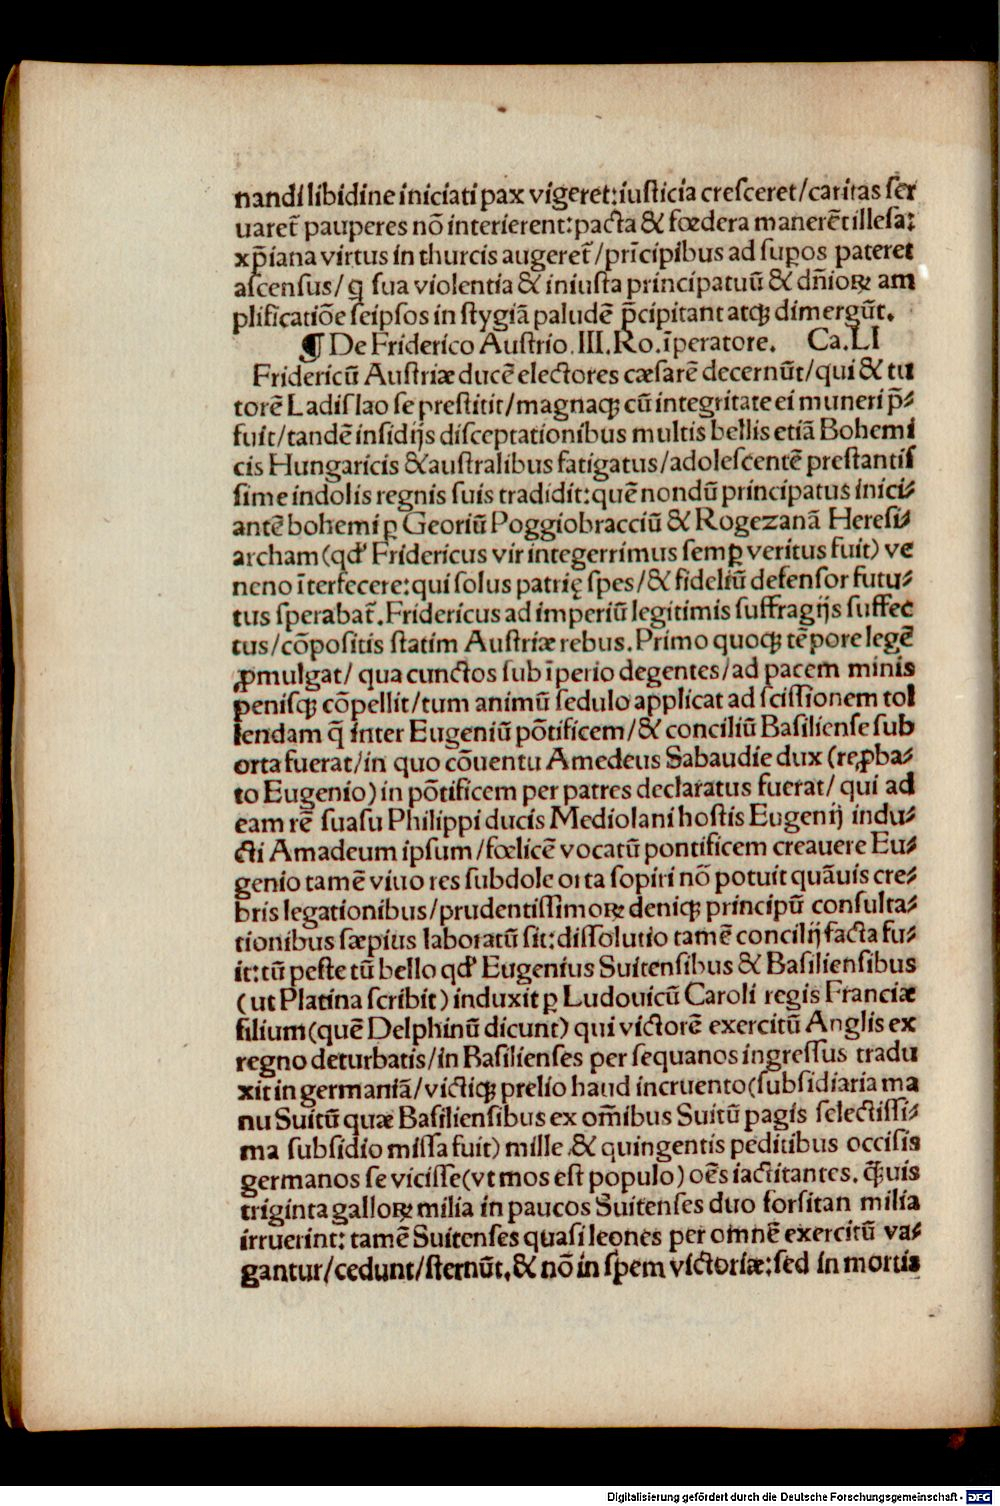 nandi libidine iniciati pax vigeret:iusticia cresceret/caritas ser
uaret̃ pauperes nō interierent:pacta & fœdera manerēt illesa:
xp̄iana virtus in thurcis augeret̃/prīcipibus ad supos pateret
ascensus/ q̨ sua violentia & iniusta principatuū & dn̄ioꝝ am
plificatiōe seipsos in stygiā paludē p̄cipitant atqꝫ dimergūt.
¶ De Friderico Austrio.III.Ro.īperatore. Ca.LI
Fridericū Austriæ ducē electores cæsarē decernūt/qui & tu
torē Ladislao se prestitit/magnaqꝫ cū integritate ei muneri p̄⸗
fuit/tandē insidijs disceptationibus multis bellis etiā Bohemi
cis Hungaricis & australibus fatigatus/adolescentē prestantis
sime indolis regnis suis tradidit:quē nondū principatus inici⸗
antē bohemi ꝑ Georiū Poggiobracciū & Rogezanā Heresi⸗
archam (qd' Fridericus vir integerrimus semꝑ veritus fuit) ve
neno īterfecere:qui solus patrię spes/& fideliū defensor futu⸗
tus sperabat̃.Fridericus ad imperiū legitimis suffragijs suffec
tus/cōpositis statim Austriæ rebus.Primo quoqꝫ tēpore legē
ꝓmulgat/ qua cunctos sub īperio degentes/ad pacem minis
penisqꝫ cōpellit/tum animū sedulo applicat ad scissionem tol
lendam q̄ inter Eugeniū pōtificem/& conciliū Basiliense sub
orta fuerat/in quo cōuentu Amedeus Sabaudie dux (reꝓba⸗
to Eugenio) in pōtificem per patres declaratus fuerat/ qui ad
eam rē suasu Philippi ducis Mediolani hostis Eugenij indu⸗
cti Amadeum ipsum/fœlicē vocatū pontificem creauere Eu⸗
genio tamē viuo res subdole orta sopiri nō potuit quāuis cre⸗
bris legationibus/prudentissimoꝝ deniqꝫ principū consulta⸗
tionibus sæpius laboratū sit:dissolutio tamē concilij facta fu⸗
it:tū peste tū bello qd' Eugenius Suitensibus & Basiliensibus
(ut Platina scribit) induxit ꝑ Ludouicū Caroli regis Franciæ
filium(quē Delphinū dicunt) qui victorē exercitū Anglis ex
regno deturbatis/in Basilienses per sequanos ingressus tradu
xit in germaniā/victiqꝫ prelio haud incruento(subsidiaria ma
nu Suitū quæ Basiliensibus ex om̄ibus Suitū pagis selectissi⸗
ma subsidio missa fuit) mille & quingentis peditibus occisis
germanos se vicisse(vt mos est populo) oēs iactitantes. q̄uis
triginta galloꝝ milia in paucos Suitenses duo forsitan milia
irruerint: tamē Suitenses quasi leones per omnē exercitū va⸗
gantur/cedunt/sternūt.& nō in spem victoriæ:sed in mortis
Digitalisierung gefördert durch die Deutsche Forschungsgemeinschaft - DFG